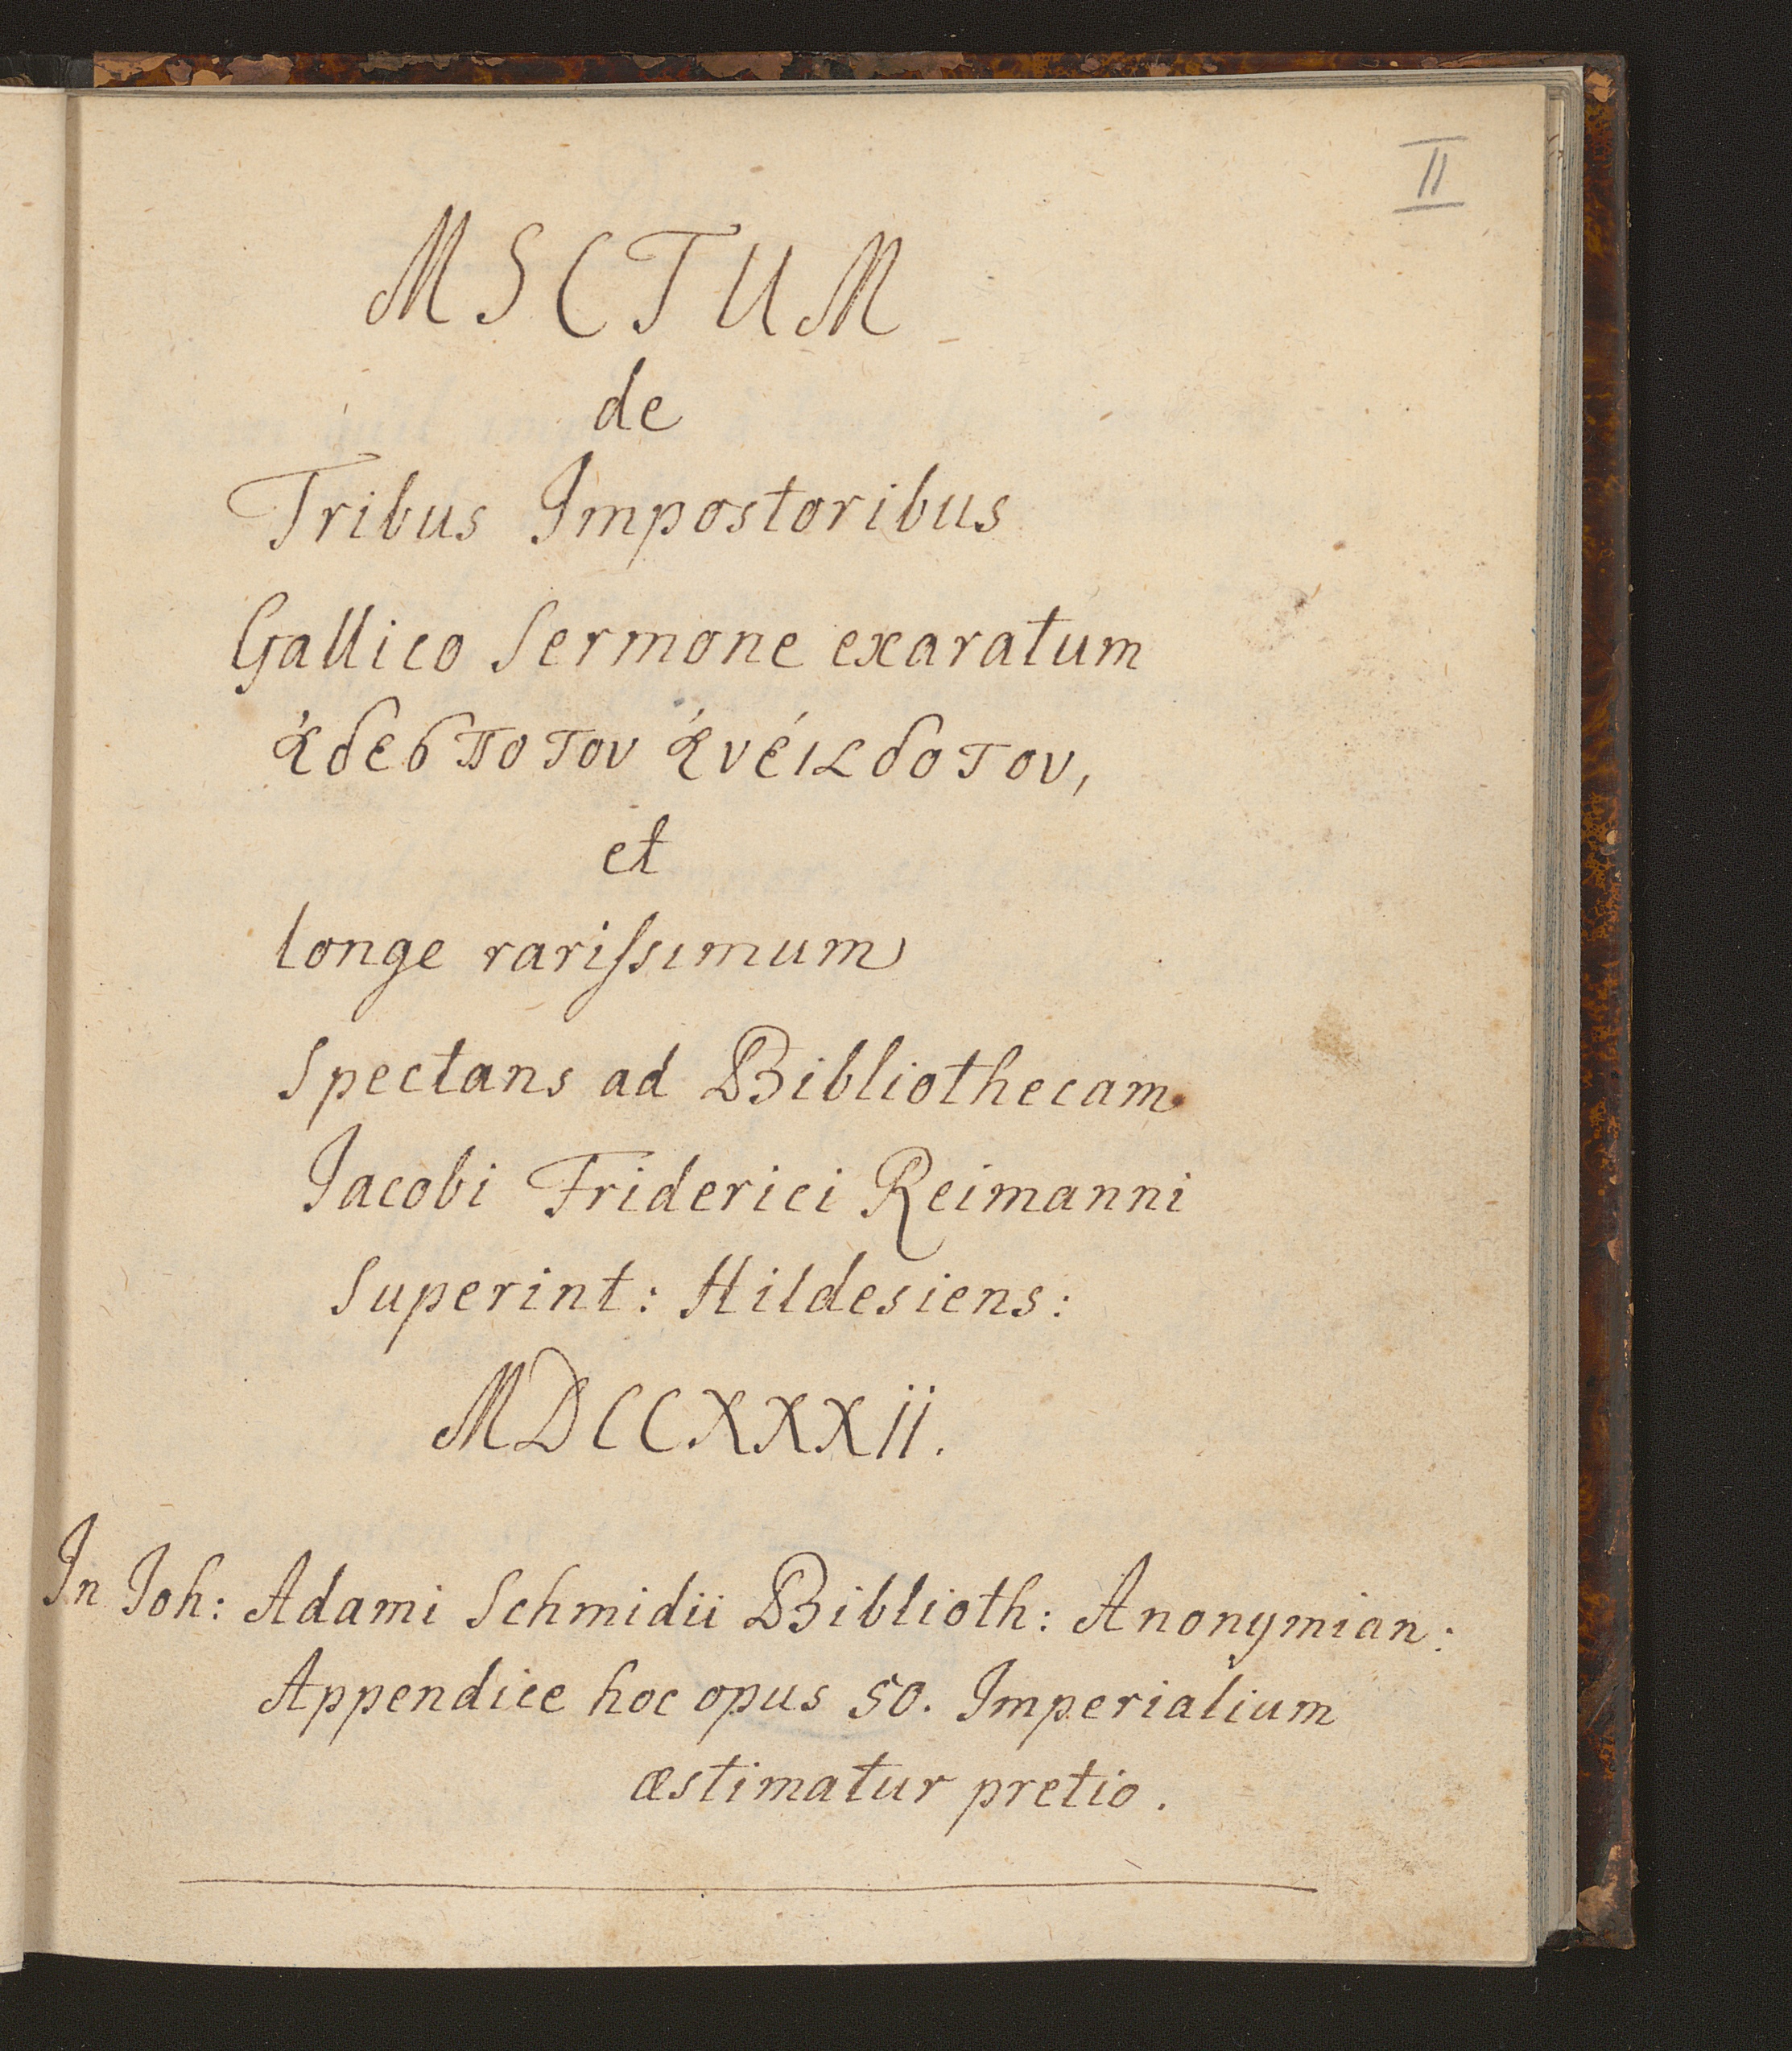 II
MSCTUM
de
Tribus Impostoribus
Gallico Sermone exaratum
ἀδεσποτον ἀνέικδοτον,
et
longe rarissimum
Spectans ad Bibliothecam
Jacobi Friderici Reimanni
Superint: Hildesiens:
MDCCXXXII.
In Joh: Adami Schmidii Biblioth: Anonymian:
Appendice hoc opus 50. Imperialium
æstimatur pretio.